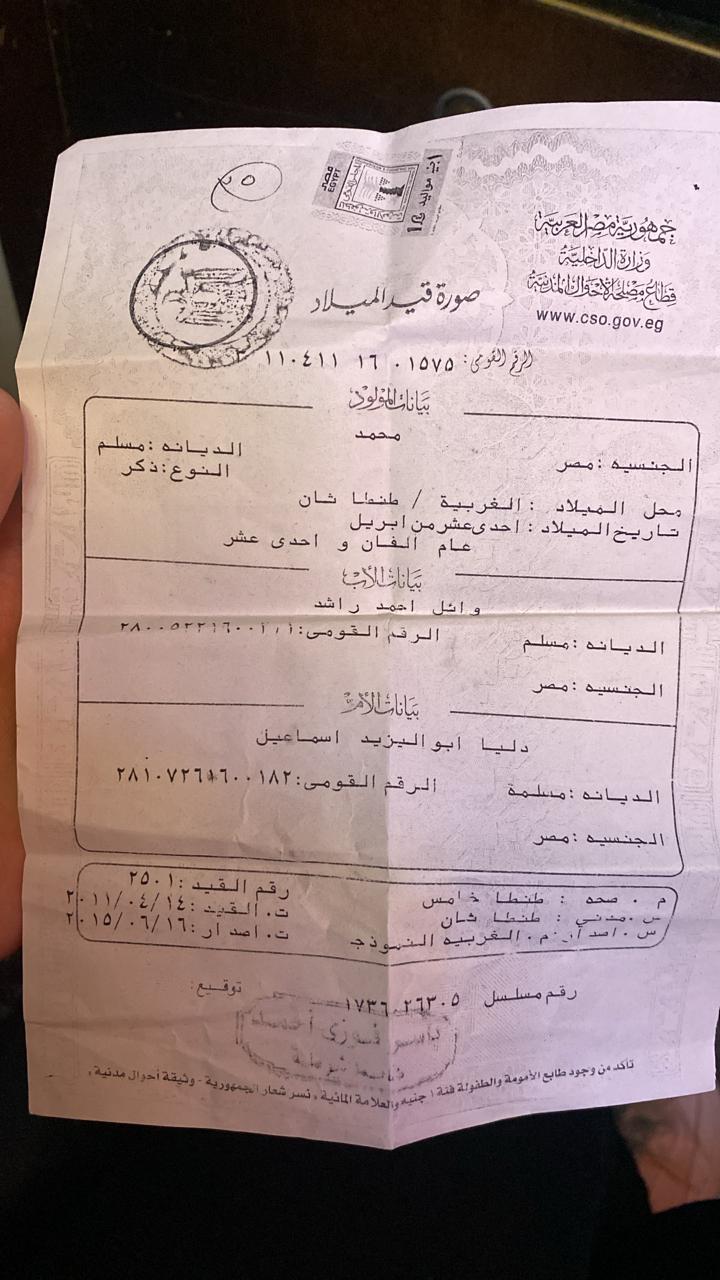 جمهورية مصر العربية
وزارة الداخلية
قطاع مصلحة الأحوال المدنية
www.cso.gov.eg
مصر
EGYPT
٥
صورة قيد الميلاد
الرقم القومى: ١١٠٤١١ ١٦ ٠١٥٧٥
بيانات المولود
محمد
الجنسيه :مصر الديانه :مسلم
النوع:ذكر
محل الميلاد : الغربية / طنطا شان
تاريخ الميلاد : احدى عشر من ابريل
عام الفان و احدى عشر
بيانات الأب
وائل احمد راشد
الديانه :مسلم الرقم القومى:
الجنسيه :مصر
بيانات الأم
دليا ابو اليزيد اسماعيل
الديانه :مسلمة الرقم القومى:٢٨١٠٧٢٦١٦٠٠١٨٢
الجنسيه :مصر
م . صحه : طنطا خامس رقم القيد :٢٥٠١
س .مدني : طنطا شان ت. القيد :٢٠١١/٠٤/١٤
س . اصدار :م . الغربيه النموذج ت. اصدار :٢٠١٥/٠٦/١٦
رقم مسلسل ١٧٣٦٠٢٦٣٠٥ توقيع:
ياسر فوزى أحمد
تأكد من وجود طابع الأمومة والطفولة فئة ١ جنيه والعلامة المائية ، نسر شعار الجمهورية - وثيقة أحوال مدنية ،